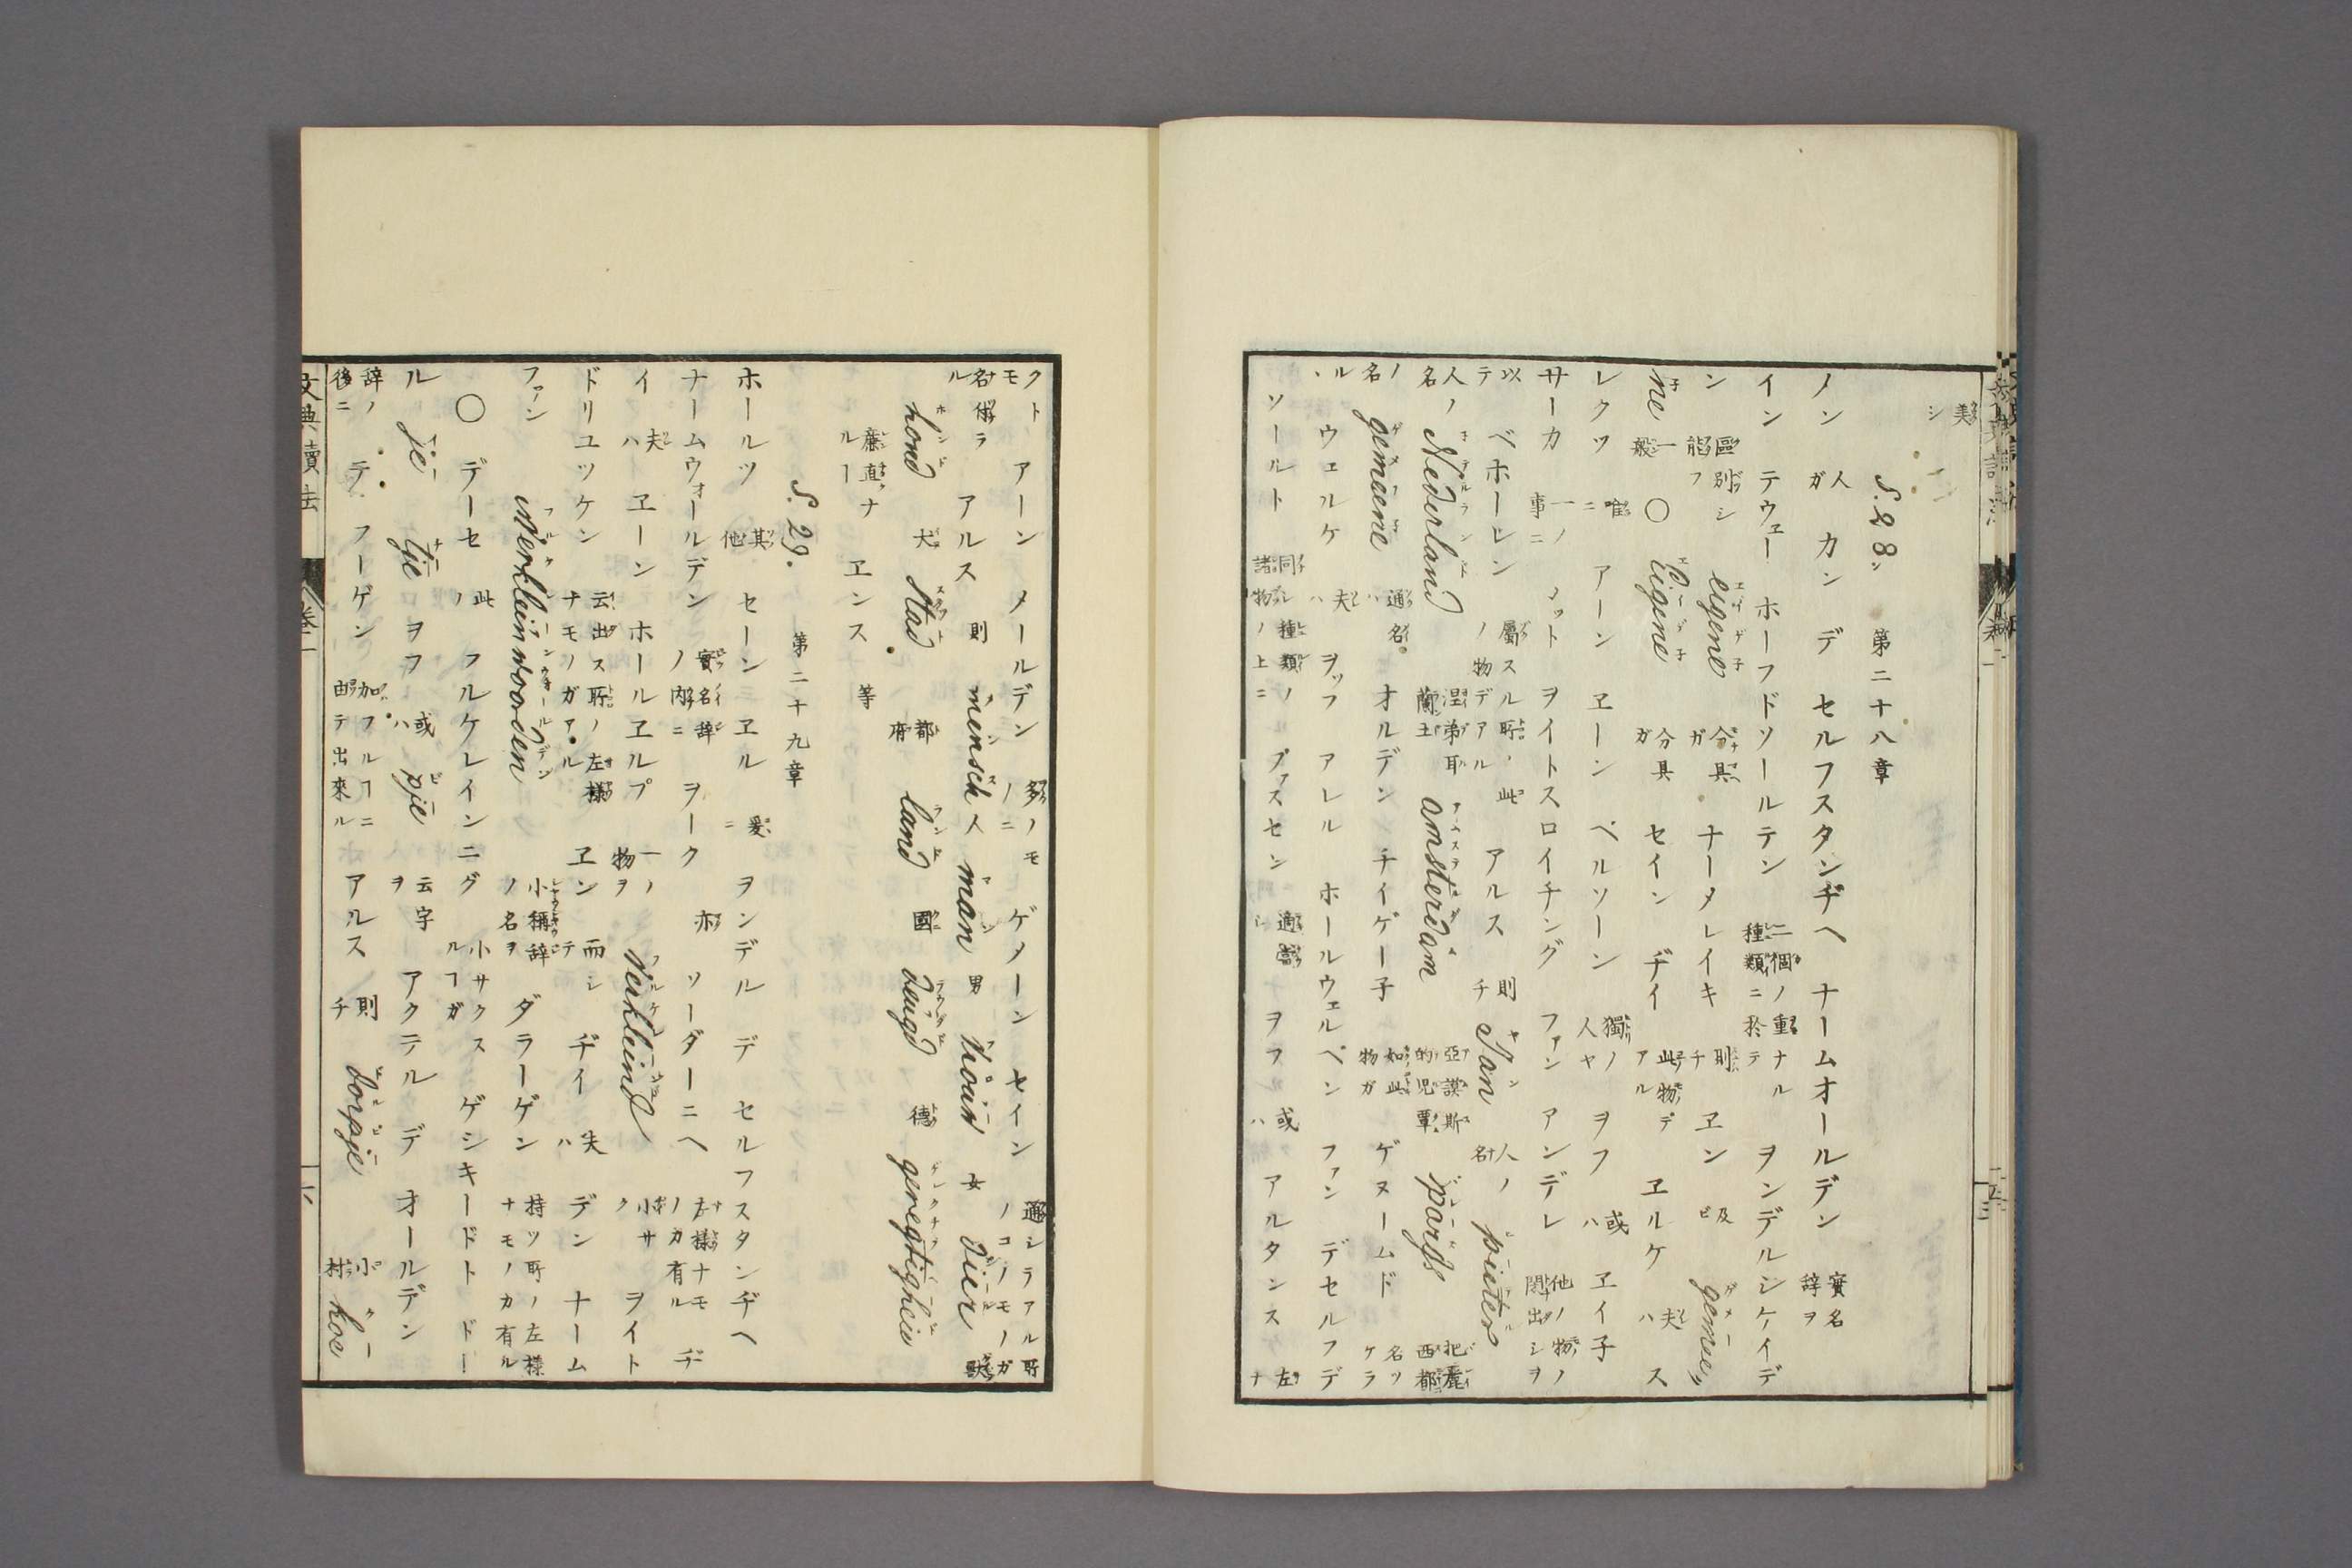 美シ
S. 28. 第二十八章
ノン 人ガ カン デ セルフスタンヂヘ ナームオールデン 實名辞ヲ
イン テウェー ホーフドソールテン 二個ノ重ナル種類ニ於テ ヲンデルシケイデ
ン 區別シ能フ eigene 分具ガ ナーメレイキ 則チ ヱン 及ビ gemee〃
ne 一般 〇 Eigene 分具ガ セイン ヂイ 此物デアル ヱルケ 夫ハ ス
レクツ 唯ニ アーン ヱーン ペルソーン 獨ノ人ヤ ヲフ 或ハ ヱイ子
サーカ 一ノ事ニ ヲイトスロイチング ファン アンデレ 他ノ物ノ関出シヲ
以テ ベホーレン 屬スル所ノ物デアル 此 アルス 則チ Jan 人ノ名 pieter
人ノ名 Nederland 涅弟耳蘭土 amsterdam 亞謨斯的児覃 parijs 把麗西都
ノ名 gemeene 通名ハ オルデン チイゲー子 如此物ガ ゲヌームド 名ツケラ
ル、 ウェルケ 夫ハ ヲッフ アレル ホールウェルペン ファン デセルフデ
ソールト 同シ種類ノ諸物ノ上ニ プァスセン 適當シ ヲフ 或ハ アルタンス 左ナ
クトモ アーン メールデン 多ノモノニ ゲメーン セイン 通シラアル所ノコノモノガ
名俤ラル アルス 則 mensch 人 man 男 vrouw 女 dier 獸
hond 犬 stad 都府 land 國 deugd 德 geregtigheid
廉直ナルー ヱンス 等
S. 29. 第二十九章
ホールツ 其他 セーン ヱル 爰ニ ヲンデル デ セルフスタンヂヘ
ナームウォールデン 實名辞ノ内ニ ヲーク 亦 ソーダーニヘ 左様ナモノカ有ル ヂ
イ 夫ハ ヱーン ホールヱルプ 一ノ物ヲ verkleind 小サク ヲイト
ドリユツケン 云出ス所ノ左様ナモノガアル ヱン 而シテ ヂイ 夫ハ デン ナーム
ファン verkleinwoorden 小稱辞ノ名ヲ ダラーゲン 持ツ所ノ左様ナモノカ有ル
〇 デーセ 此ノ フルケレインニグ 小サクスルヿガ ゲシキードト ドー
ル je tje ヲフ 或ハ pje 云字ヲ アクテル デ オールデン
辞ノ後ニ テ フーゲン 加フルヿニ由テ出來ル アルス 則チ dorpje 小村 hoe
文典讀法